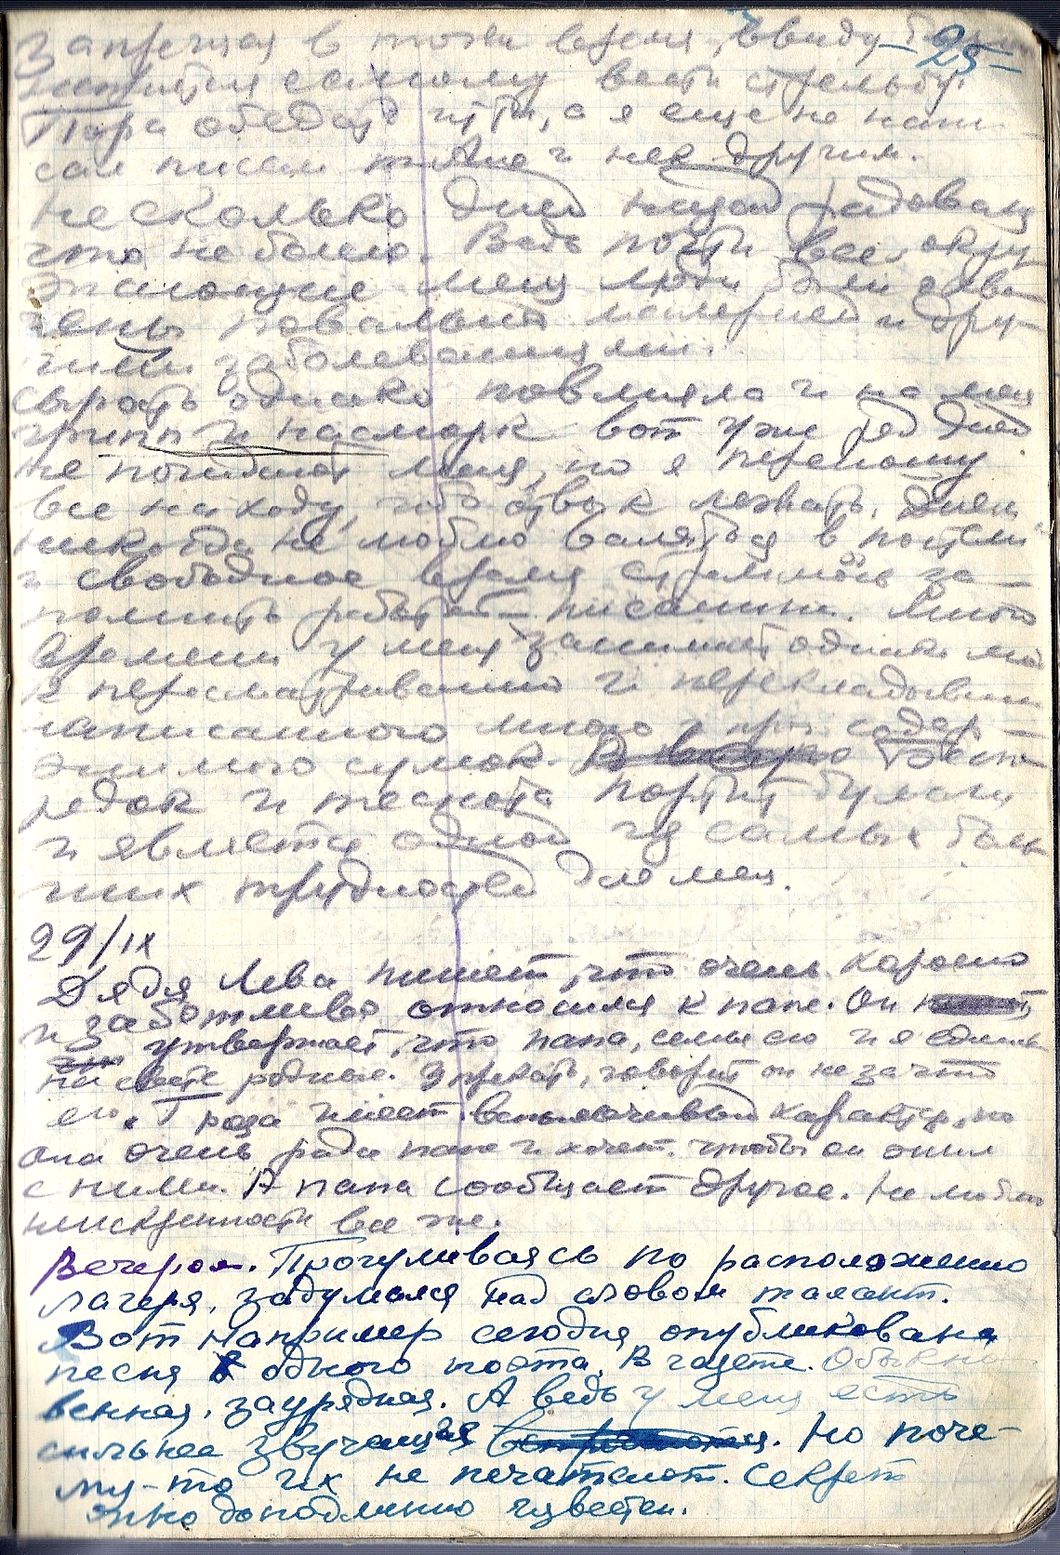 – 25 –
Запрещая в тоже время, ввиду
самому вести стрельбу.
Пора обедать идти, а я еще не напи-
сал писем т. Ане и
Несколько дней назад радовался
что не болею. Ведь почти все окру-
жающие меня люди были охва-
чены повальной малярией и дру-
гими заболеваниями.
Сырость однако повлияла и на меня
грипп и насморк вот уже ряд дней
не покидают меня, но я переношу
все на ходу, ибо отвык лежать. Днем
никогда не люблю валяться в постели
и свободное время стремлюсь за-
полнить работой – писанием. Много
времени у меня занимает однако
к пересматриванию и перекладыванию
написанного много и проч. содер-
жимого сумок. Беспо-
рядок и теснота портит бумаги
и является одной из самых боль-
ших трудностей для меня.
29/IX
Дядя Лева пишет, что очень хорошо
и заботливо относился к папе. Он
утверждает, что папа, семья его и я единств.
на свете родные. Упрекать, говорит он не за что
его. Т. Роза имеет вспыльчивый характер, но
она очень рада папе и хочет, чтобы он жил
с ними. А папа сообщает другое. Не люблю
неискренности все же.
Вечером. Прогуливаясь по расположению
лагеря, задумался над словом талант.
Вот например сегодня опубликована
песня одного поэта, в газете. Обыкно-
венная, заурядная. А ведь у меня есть
сильнее звучащая. Но поче-
му-то их не печатают. Секрет
доподлинно известен.